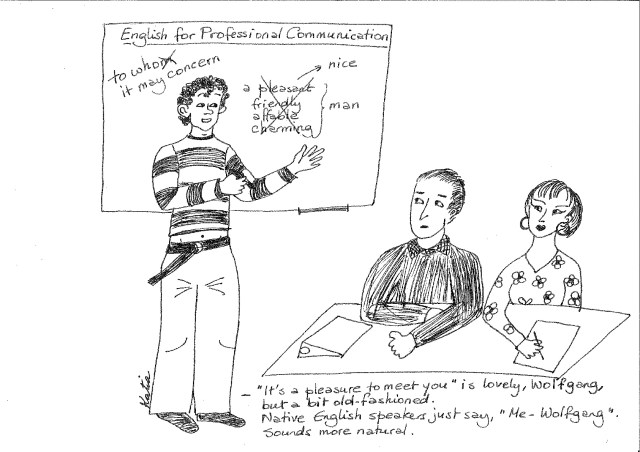 English for Professional Communication
to whom
it may concern
nice
a pleasant
friendly
affable
charming
man
- "It's a pleasure to meet you" is lovely, Wolfgang,
but a bit old-fashioned.
Native English speakers just say, "Me - Wolfgang".
Sounds more natural.
Katie